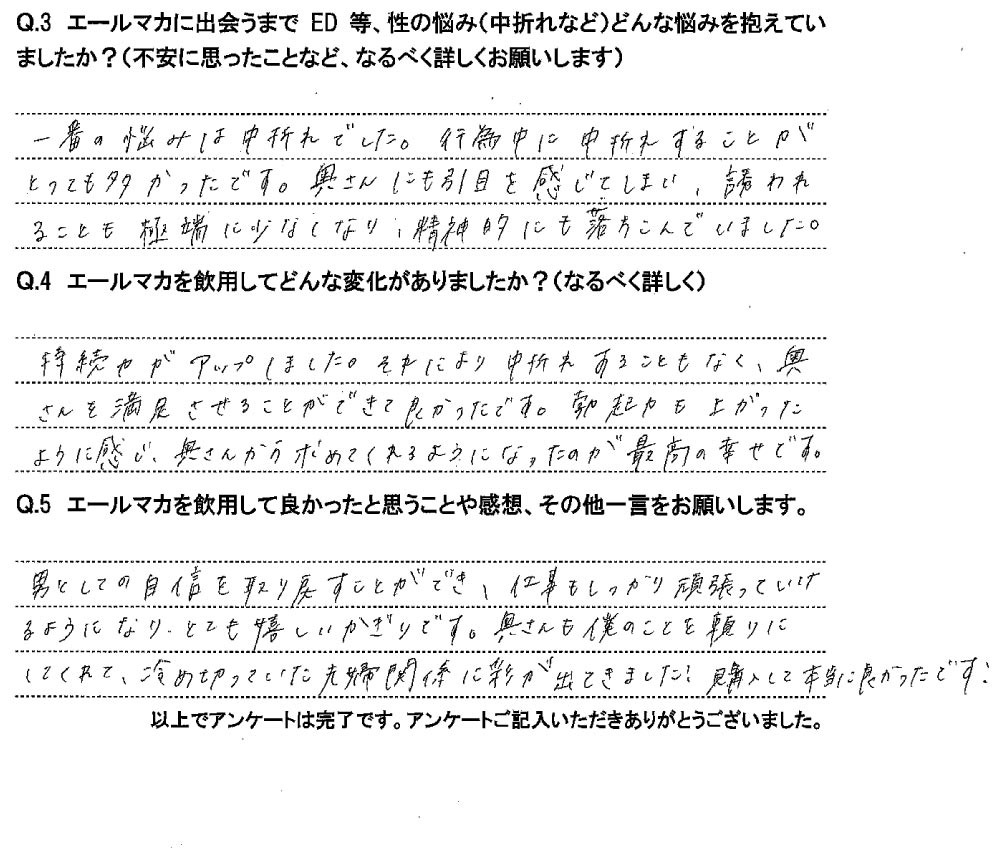 Q.3 エールマカに出会うまで ED 等、性の悩み(中折れなど)どんな悩みを抱えてい
ましたか?(不安に思ったことなど、なるべく詳しくお願いします)
一番の悩みは中折れでした。行為中に中折れすることが
とっても多かったです。奥さんにも引目を感じてしまい、誘われ
ることも極端に少なくなり、精神的にも落ちこんでいました。
Q.4 エールマカを飲用してどんな変化がありましたか?(なるべく詳しく)
持続力がアップしました。それにより中折れあることもなく、奥
さんを満足させることができて良かったです。勃起力も上がった
ように感じ、奥さんから求めてくれるようになったのが最高の幸せです。
Q.5 エールマカを飲用して良かったと思うことや感想、その他一言をお願いします。
男としての自信を取り戻すことができ、仕事もしっかり頑張っていけ
るようになり、とても嬉しいかぎりです。奥さんも僕のことを頼りに
してくれて、冷め切っていた夫婦関係に彩が出てきました!購入して本当に良かったです!
以上でアンケートは完了です。アンケートご記入いただきありがとうございました。